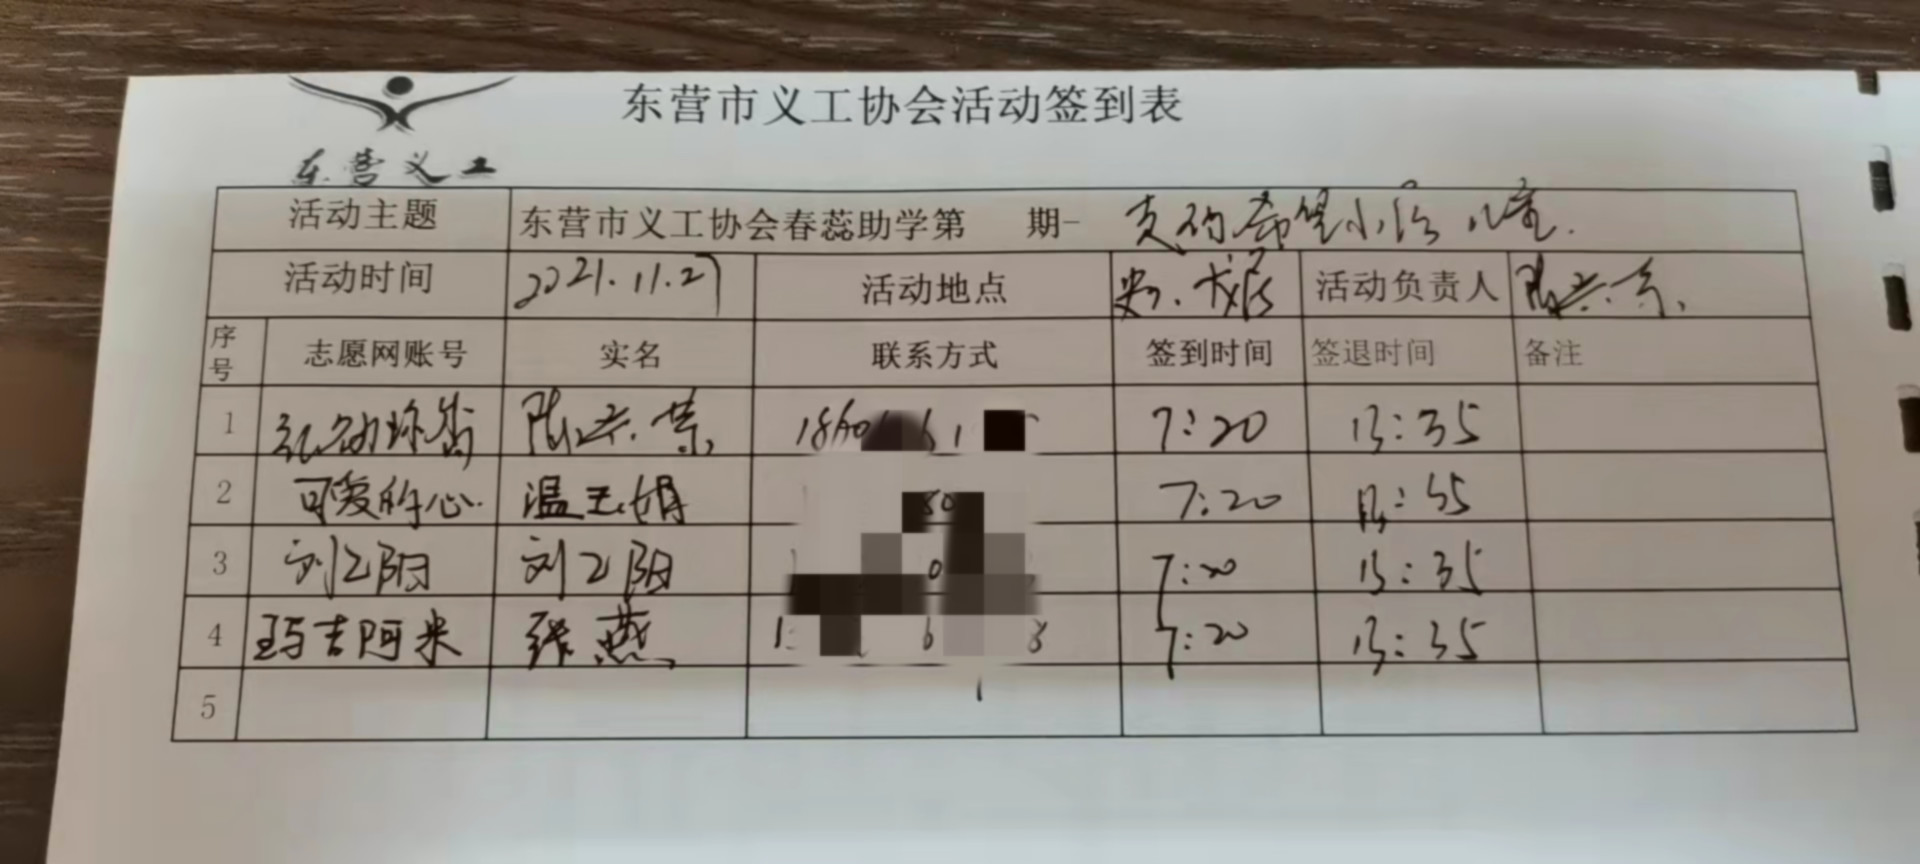 东营市义工协会活动签到表
东营义工
活动主题 东营市义工协会春蕊助学第 期-
活动时间 2021.11.27 活动地点 活动负责人
序号 志愿网账号 实名 联系方式 签到时间 签退时间 备注
1 7:20 13:35
2 可爱的心 温玉娟 7:20 13:35
3 刘乙阳 刘乙阳 7:20 13:35
4 玛吉阿米 张燕 7:20 13:35
5